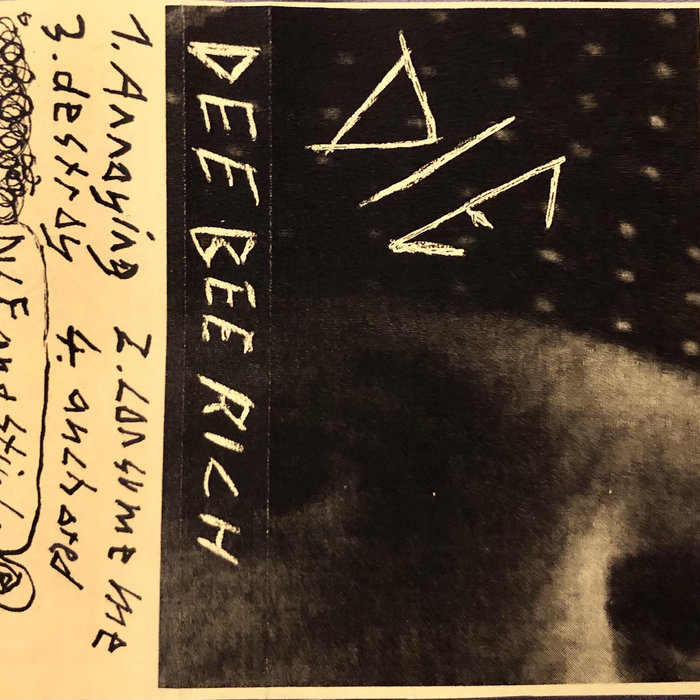 D/E
DEE BEE RICH
1. Annoying 2. Consume me
3. destroy 4. anchored